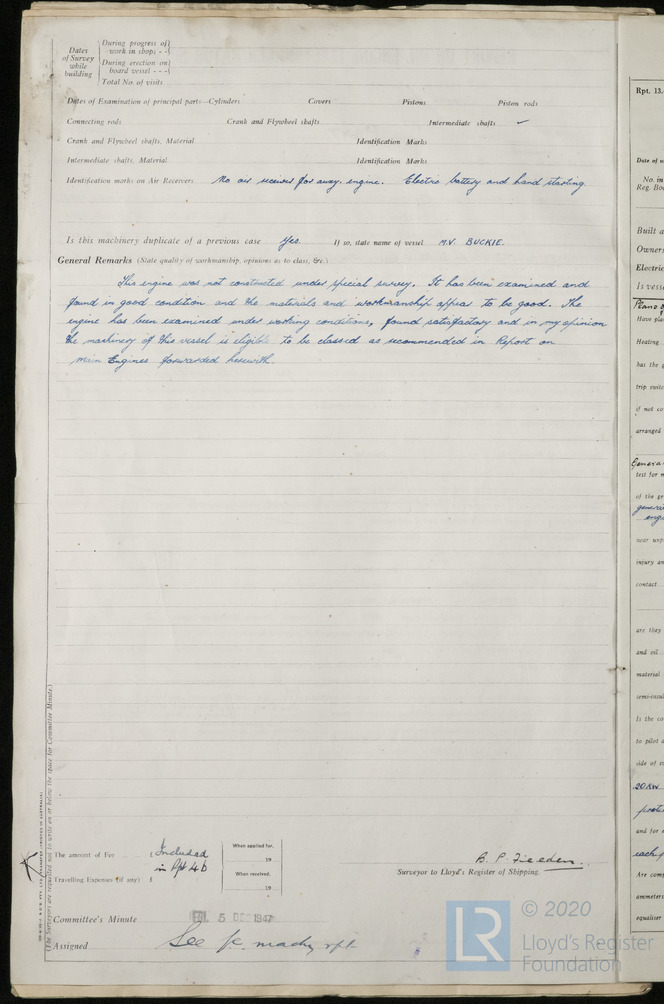 Dates of Survey while building
During progress of work in shops - -
During erection on board vessel - - -
Total No. of visits
Dates of Examination of principal parts—Cylinders Covers Pistons Piston rods
Connecting rods Crank and Flywheel shafts Intermediate shafts ✓
Crank and Flywheel shafts, Material Identification Marks
Intermediate shafts, Material Identification Marks
Identification marks on Air Receivers No air receiver for auxy. engine. Electric battery and hand starting.
Is this machinery duplicate of a previous case Yes. If so, state name of vessel M.V. BUCKIE.
General Remarks (State quality of workmanship, opinions as to class, &c.)
This engine was not constructed under special survey. It has been examined and
found in good condition and the materials and workmanship appear to be good. The
engine has been examined under working conditions, found satisfactory and in my opinion
the machinery of this vessel is eligible to be classed as recommended in Report on
Main Engines forwarded herewith.
(The Surveyors are requested not to write on or below the space for Committee Minute.)
The amount of Fee £ Included in Rpt 4b
Travelling Expenses (if any) £
When applied for,
19
When received,
19
B. P. Fielden.
Surveyor to Lloyd's Register of Shipping.
Committee's Minute FRI. 5 DEC 1947
Assigned See
rpt.
Rpt. 13.
No. in
Reg. Boo
Built a
Owners
Electric
Is vess
Have pla
Heating
has the g
trip switc
if not co
arranged
Genera
test for
of the ge
near unp
injury an
contact
are they
and oil
material
semi-insul
Is the co
to pilot a
side of
20 KW
and for
each g
Are comp
ammeters
equaliser
LR
© 2020
Lloyd's Register
Foundation